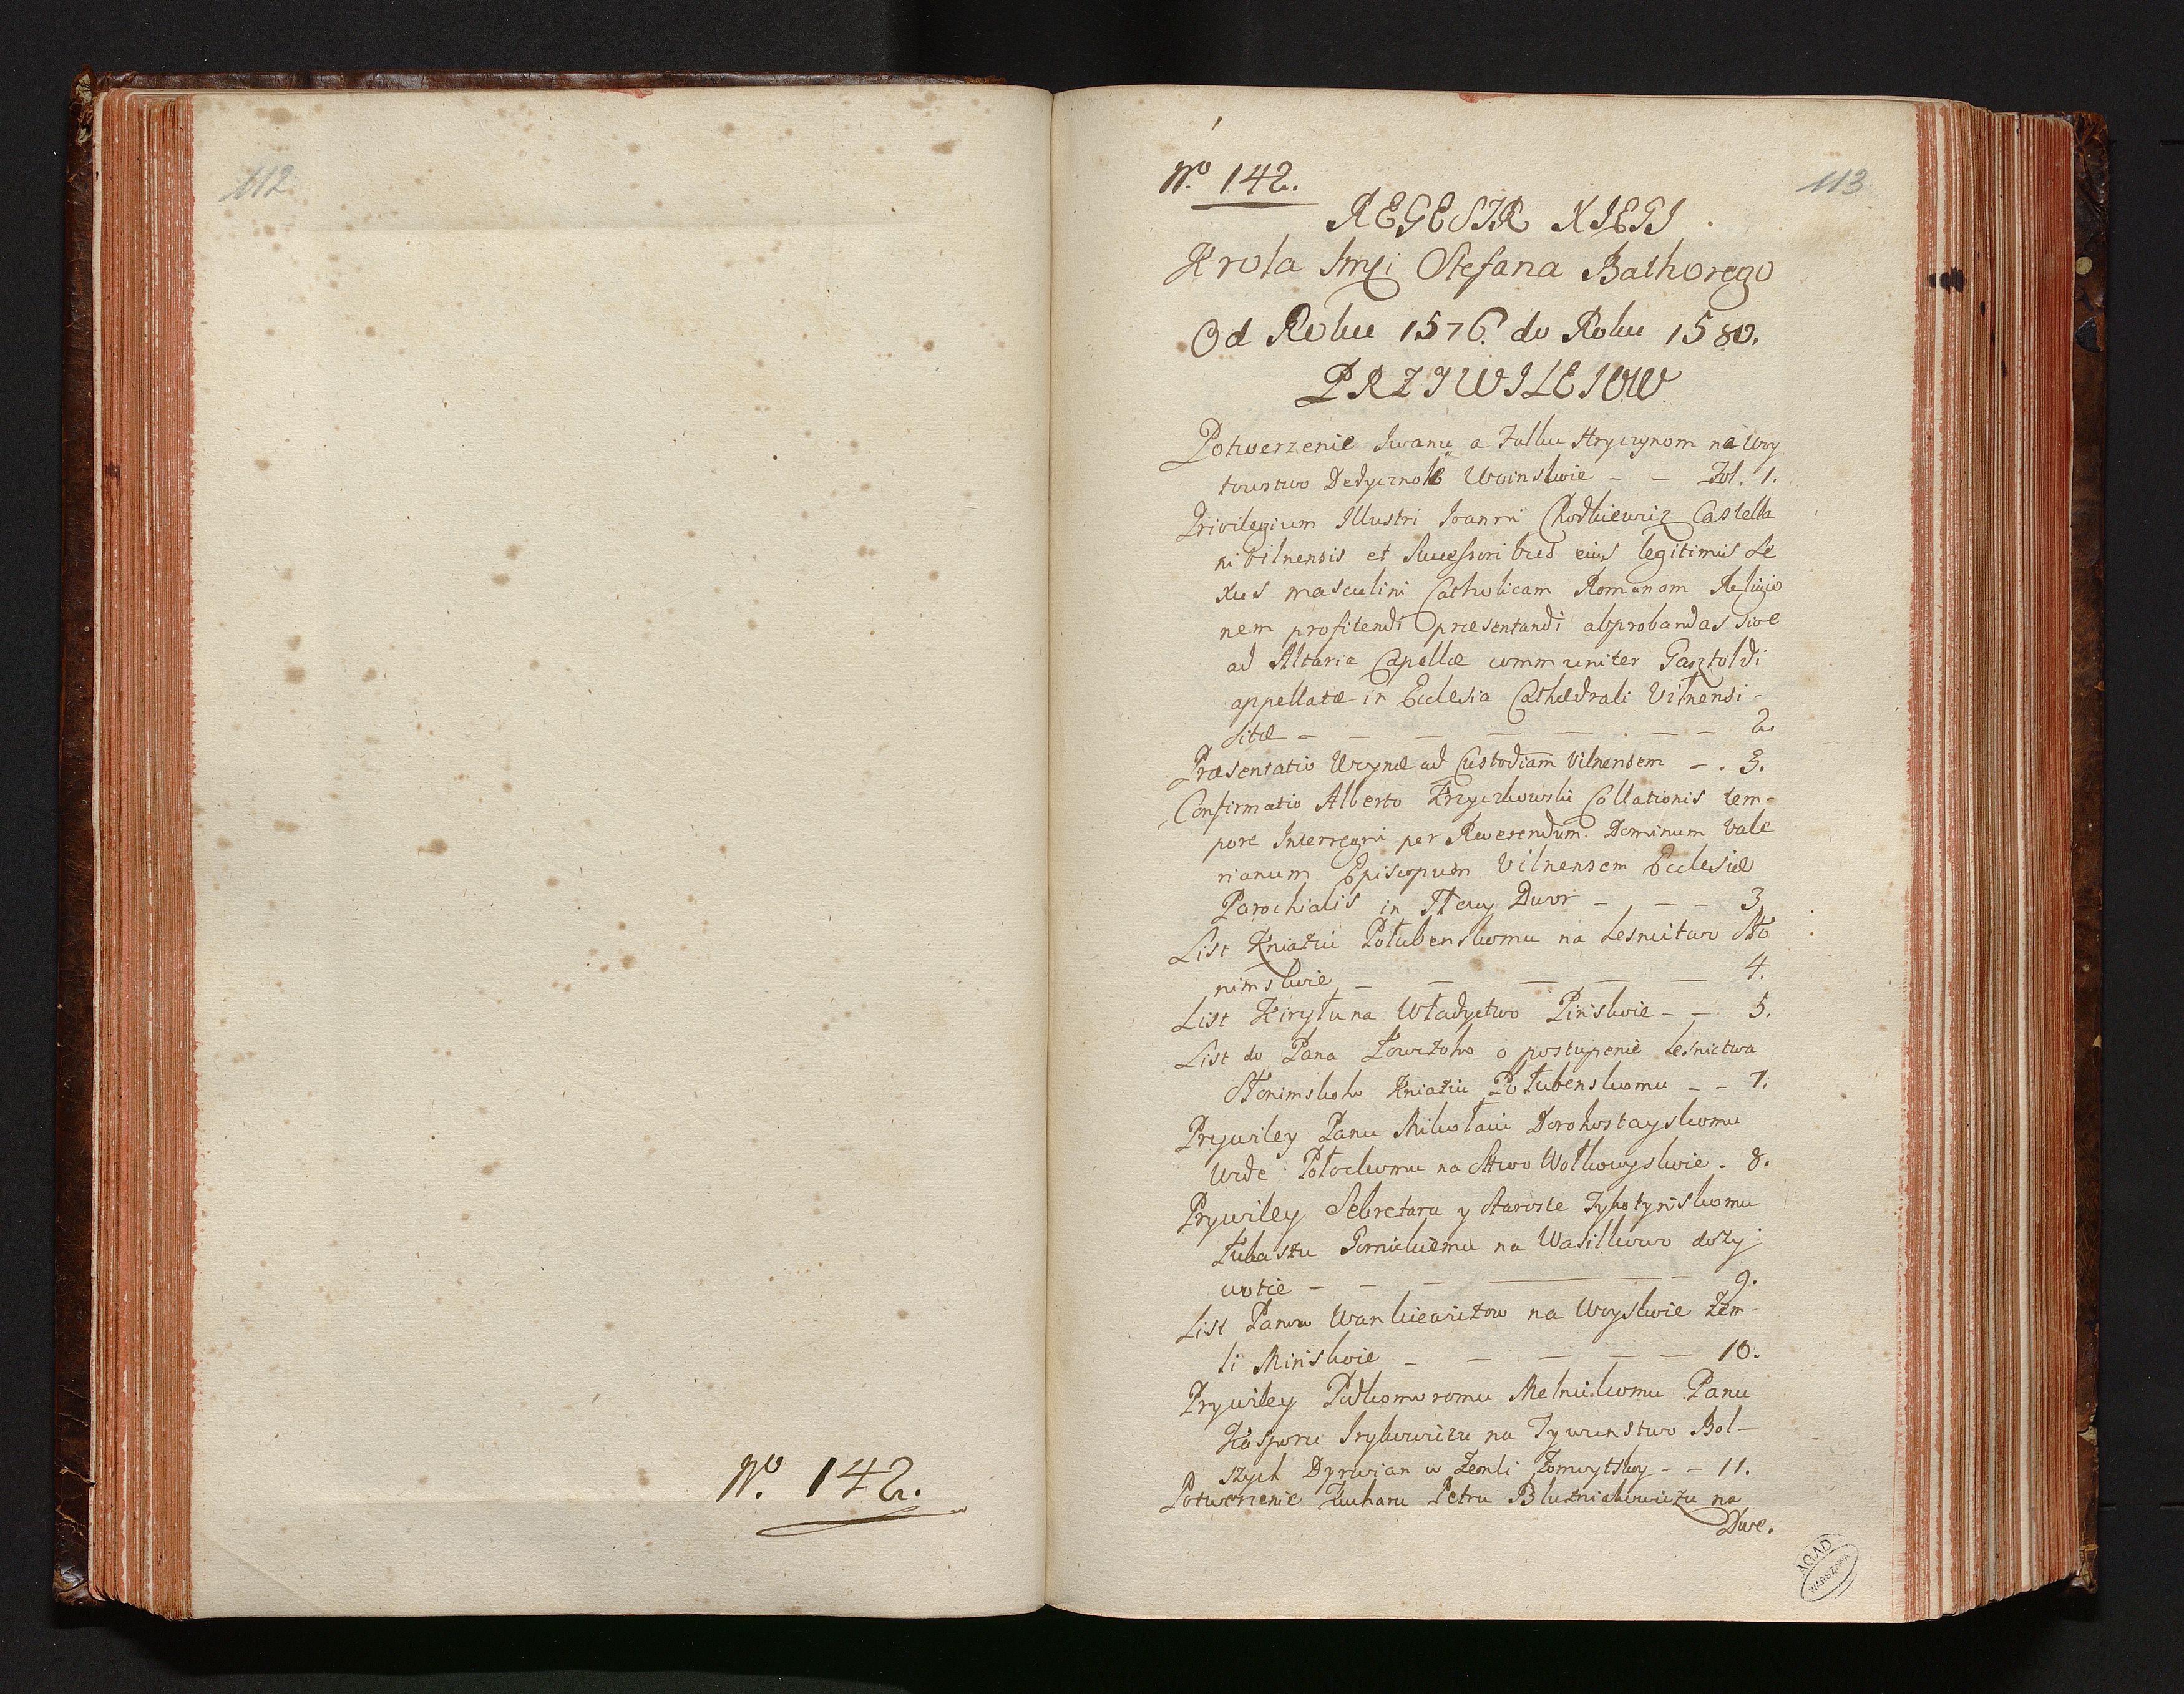 112
No. 142.
No. 142.
113
REGESTR XIĘGI
Krola Jmci Stefana Bathorego
Od Roku 1576. do Roku 1580.
PRZYWILEIOW
Potwerzenie Iwanu a Fulku Hryczynom na Woy
towstwo Dedycznoie Woinskoie - - Fol. 1.
Privilegium Illustri Joanni Chodkiewicz Castella
ni Vilnensis et Successoribus eius legitimis Se
xus masculini Catholicam Romanam Religio
nem profitendi præsentandi abprobandas sive
ad Altaria Capellæ communiter Gasztoldi
appellatæ in Ecclesia Cathedrali Vilnensi -
sitæ - - - - - - - 2.
Præsentatio Woynæ ad Custodiam Vilnensem - . 3.
Confirmatio Alberto Krzyczkowski Collationis tem-
pore Interregni per Reverendum Dominum Vale
rianum Episcopum Vilnensem Ecclesiæ
Parochialis in Stary Dwor - - - 3
List Kniaziu Połubenskomu na Lesnictwo Sło
nimskoie - - - - - 4.
List Kiryłu na Władyctwo Pinskoie - - 5.
List do Pana Łowczoho o postupenie Lesnictwa
Słonimskoho Kniaziu Połubenskomu - - 7.
Prywiley Panu Mikołaiu Dorohostayskomu
Wdе: Połockomu na Stwo Wołkowyskoie - 8.
Prywiley Sekretaru y Staroste Tykotynskomu
Łukaszu Gornickiemu na Wasilkowo dozy
wotie - - - - - 9.
List Panow Wankiewiczow na Woyskoie Zem-
li Minskoie - - - - - 10.
Prywiley Podkomoromu Melnickomu Panu
Kasporu Irykowiczu na Tywunstwo Bol-
szych Dyrwian w Zemli Zomoytskoy - - 11.
Potwerzenie Zucharu Petru Bluzniakowiczu na
Dwe.
AGAD
WARSZAWA